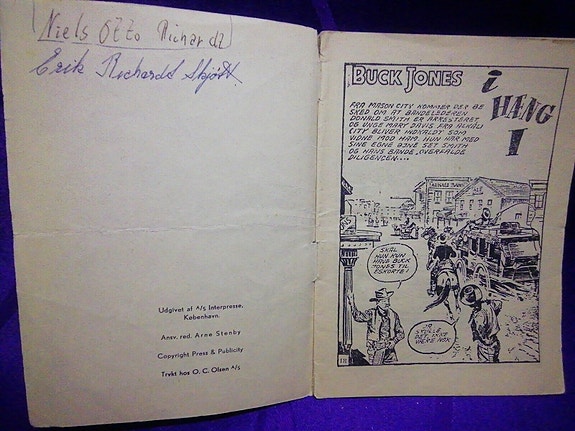 Niels Otto Richardt
Erik Richardt Skjøtt
Udgivet af A/S Interpresse,
København.
Ansv. red. Arne Stenby
Copyright Press & Publicity
Trykt hos O. C. Olsen A/S
BUCK JONES i
HÆNG
1
FRA MASON CITY KOMMER DER BE
SKED OM AT BANDELEDEREN
DONALD SMITH ER ARRESTERET,
OG UNGE MARY DAVIS FRA ALKALI
CITY BLIVER INDKALDT SOM
VIDNE MOD HAM. HUN HAR MED
SINE EGNE ØJNE SET SMITH
OG HANS BANDE, OVERFALDE
DILIGENCEN...
SKAL
HUN KUN
HAVE BUCK
JONES TIL
ESKORTE!
JA
STOLE
DET SKAL
VÆRE NOK